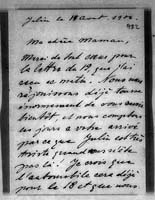 Julin le 18 aout 1902.
Ma chère Maman,
Merci de tout cœur pour
la lettre du 13, que j'ai
reçu ce matin. Nous nous
réjouissons déjà tous
énormement de vous revoir
bientôt, et nous comptons
les jours à votre arrivé
parce que Julin est
triste quand
pas là! Je crois que
l'automobile sera déjà
pour le 18 et que nous